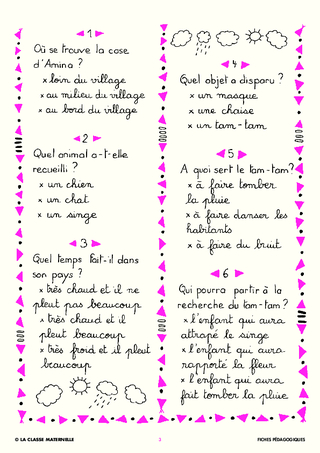 1
Où se trouve la case
d'Amina ?
× loin du village
× au milieu du village
× au bord du village
2
Quel animal a-t-elle
recueilli ?
× un chien
× un chat
× un singe
3
Quel temps fait-il dans
son pays ?
× très chaud et il ne
pleut pas beaucoup
× très chaud et il
pleut beaucoup
× très froid et il pleut
beaucoup
4
Quel objet a disparu ?
× un masque
× une chaise
× un tam-tam
5
A quoi sert le tam-tam?
× à faire tomber
la pluie
× à faire danser les
habitants
× à faire du bruit
6
Qui pourra partir à la
recherche du tam-tam ?
× l'enfant qui aura
attrapé le singe
× l'enfant qui aura
rapporté la fleur
× l'enfant qui aura
fait tomber la pluie
© LA CLASSE MATERNELLE
3
FICHES PÉDAGOGIQUES